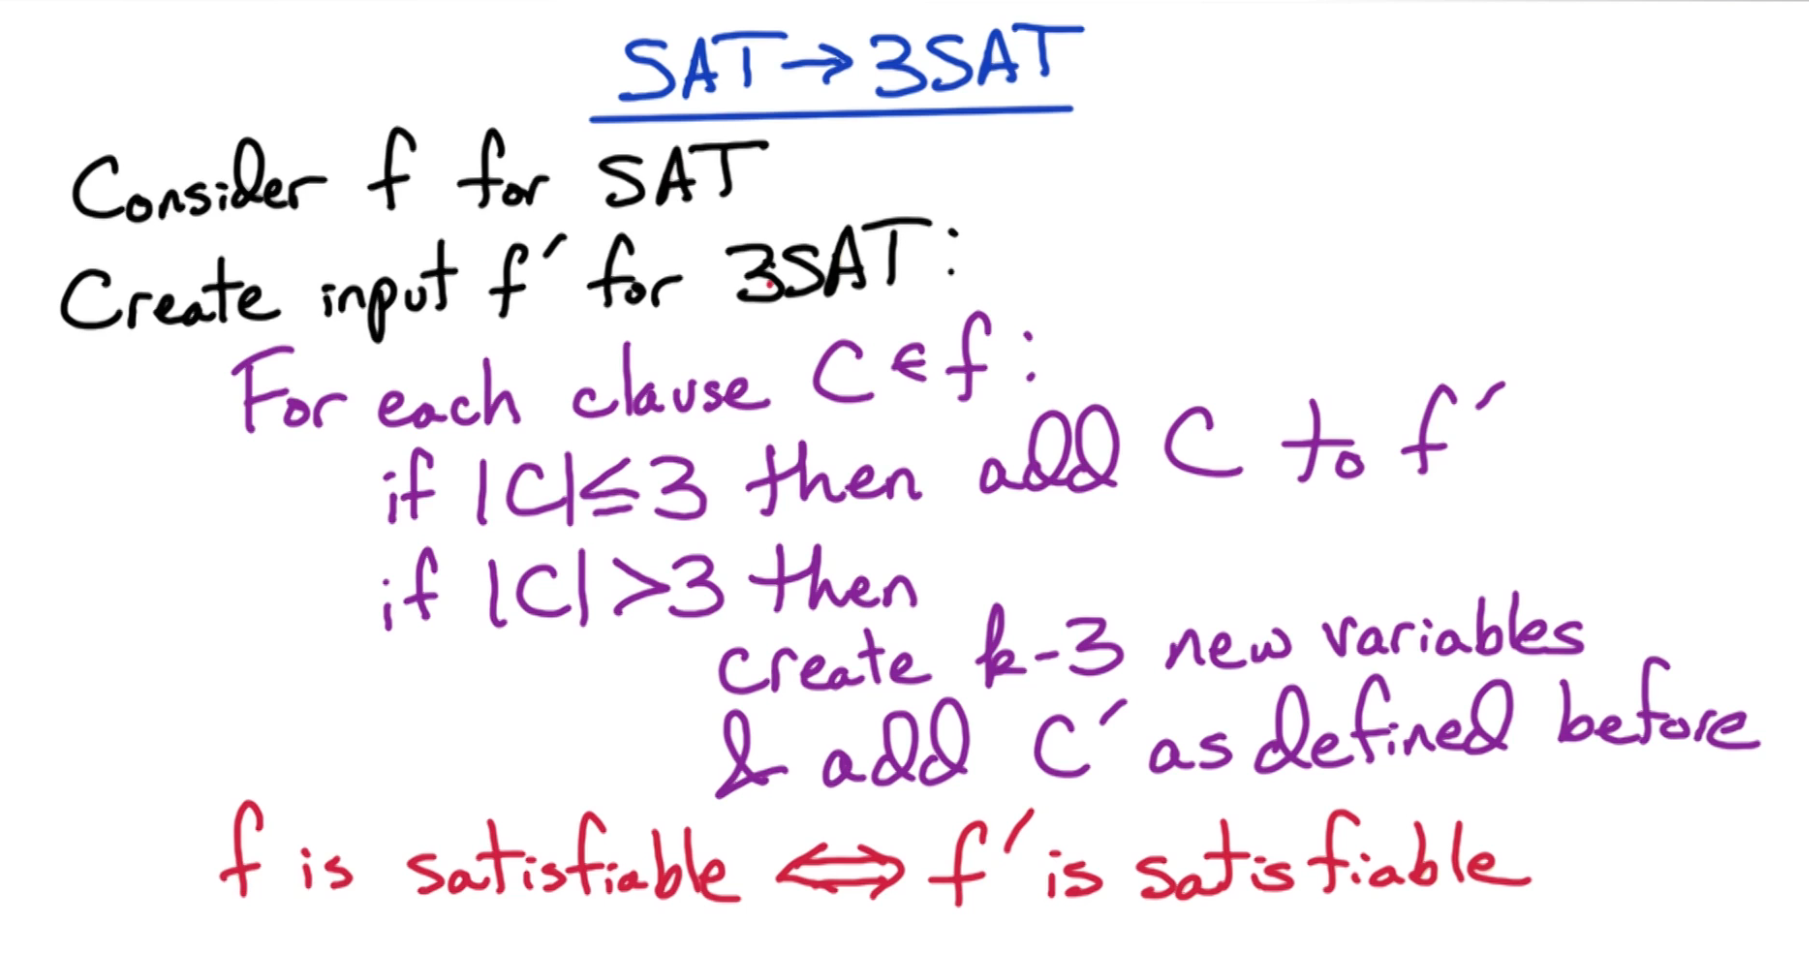 SAT → 3SAT
Consider f for SAT
Create input f' for 3SAT:
For each clause C ∈ f:
if |C| ≤ 3 then add C to f'
if |C| > 3 then
create k-3 new variables
& add C' as defined before
f is satisfiable ⟺ f' is satisfiable